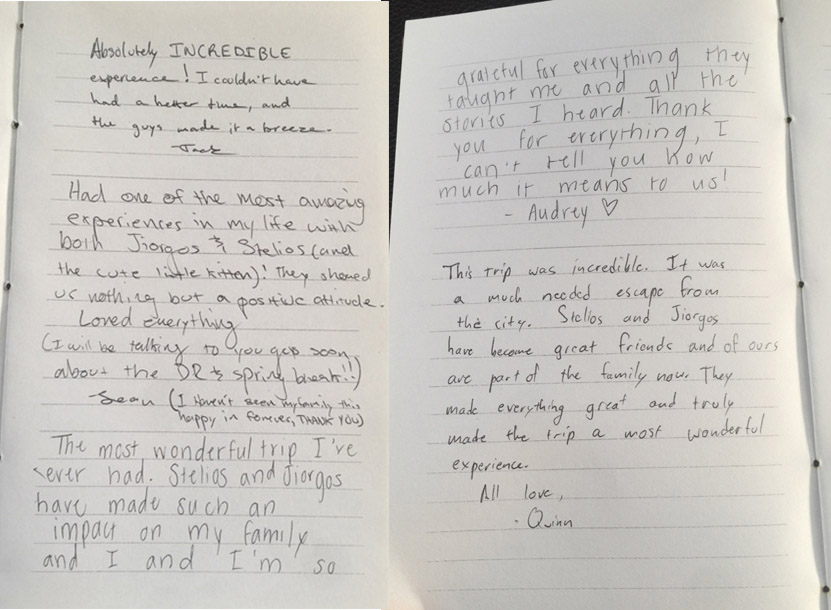 Absolutely INCREDIBLE
experience! I couldn't have
had a better time, and
the guys made it a breeze.
Jack
Had one of the most amazing
experiences in my life with
both Jiorgos & Stelios (and
the cute little kitten)! They showed
us nothing but a positive attitude.
Loved everything
(I will be talking to you guys soon
about the DR & spring break!!)
-Sean (I Haven't seen my family this
happy in forever, THANK YOU)
The most wonderful trip I've
ever had. Stelios and Jiorgos
have made such an
impact on my family
and I and I'm so
grateful for everything they
taught me and all the
stories I heard. Thank
you for everything, I
can't tell you how
much it means to us!
- Audrey ♡
This trip was incredible. It was
a much needed escape from
the city. Stelios and Jiorgos
have become great friends and of ours
are part of the family now. They
made everything great and truly
made the trip a most wonderful
experience.
All love,
- Quinn